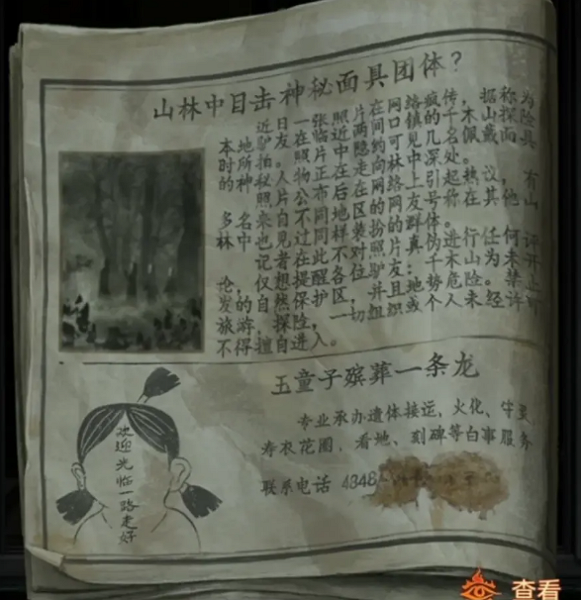 山林中目击神秘面具团体？
近日一张照片在网络疯传，据称为
本地驴友在临近两间口镇的千木山探险
时所拍。照片中隐约可见几名佩戴面具
的神秘人物正走向林中深处。
照片公布后在网络上引起热议，有
多名来自不同地区的网友号称在其他山
林中也见过同样装扮的群体。
记者在此不对照片真伪进行任何评
论，仅想提醒各位驴友：千木山为未开
发的自然保护区，并且地势危险。禁止
旅游，探险，一切组织或个人未经许
不得擅自进入。
玉童子殡葬一条龙
专业承办遗体接运，火化、守灵
寿衣花圈，看地、刻碑等白事服务
联系电话 4848
欢迎光临一路走好
查看